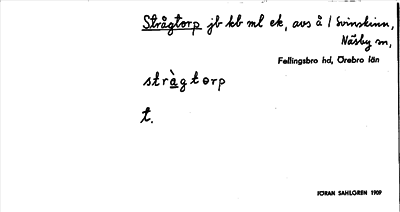 Strågtorp jb kb ml ek, avs å / Svinskinn,
Näsby sn,
Fellingsbro hd, Örebro län
stràgtorp
t.
JÖRAN SAHLGREN 1909